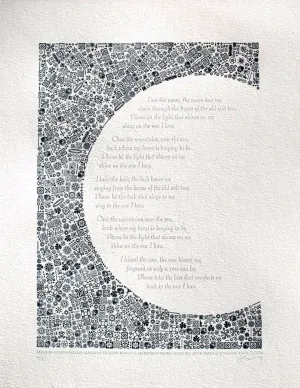 I see the moon, the moon sees me
down through the leaves of the old oak tree.
Please let the light that shines on me
shine on the one I love.
Over the mountains, over the sea,
back where my heart is longing to be,
Please let the light that shines on me
shine on the one I love.
I hear the lark, the lark hears me
singing from the leaves of the old oak tree.
Please let the lark that sings to me
sing to the one I love.
Over the mountains, over the sea,
back where my heart is longing to be,
Please let the light that shines on me
shine on the one I love.
I kissed the rose, the rose kissed me,
fragrant as only a rose can be.
Please take the kiss that comforts me
back to the one I love.